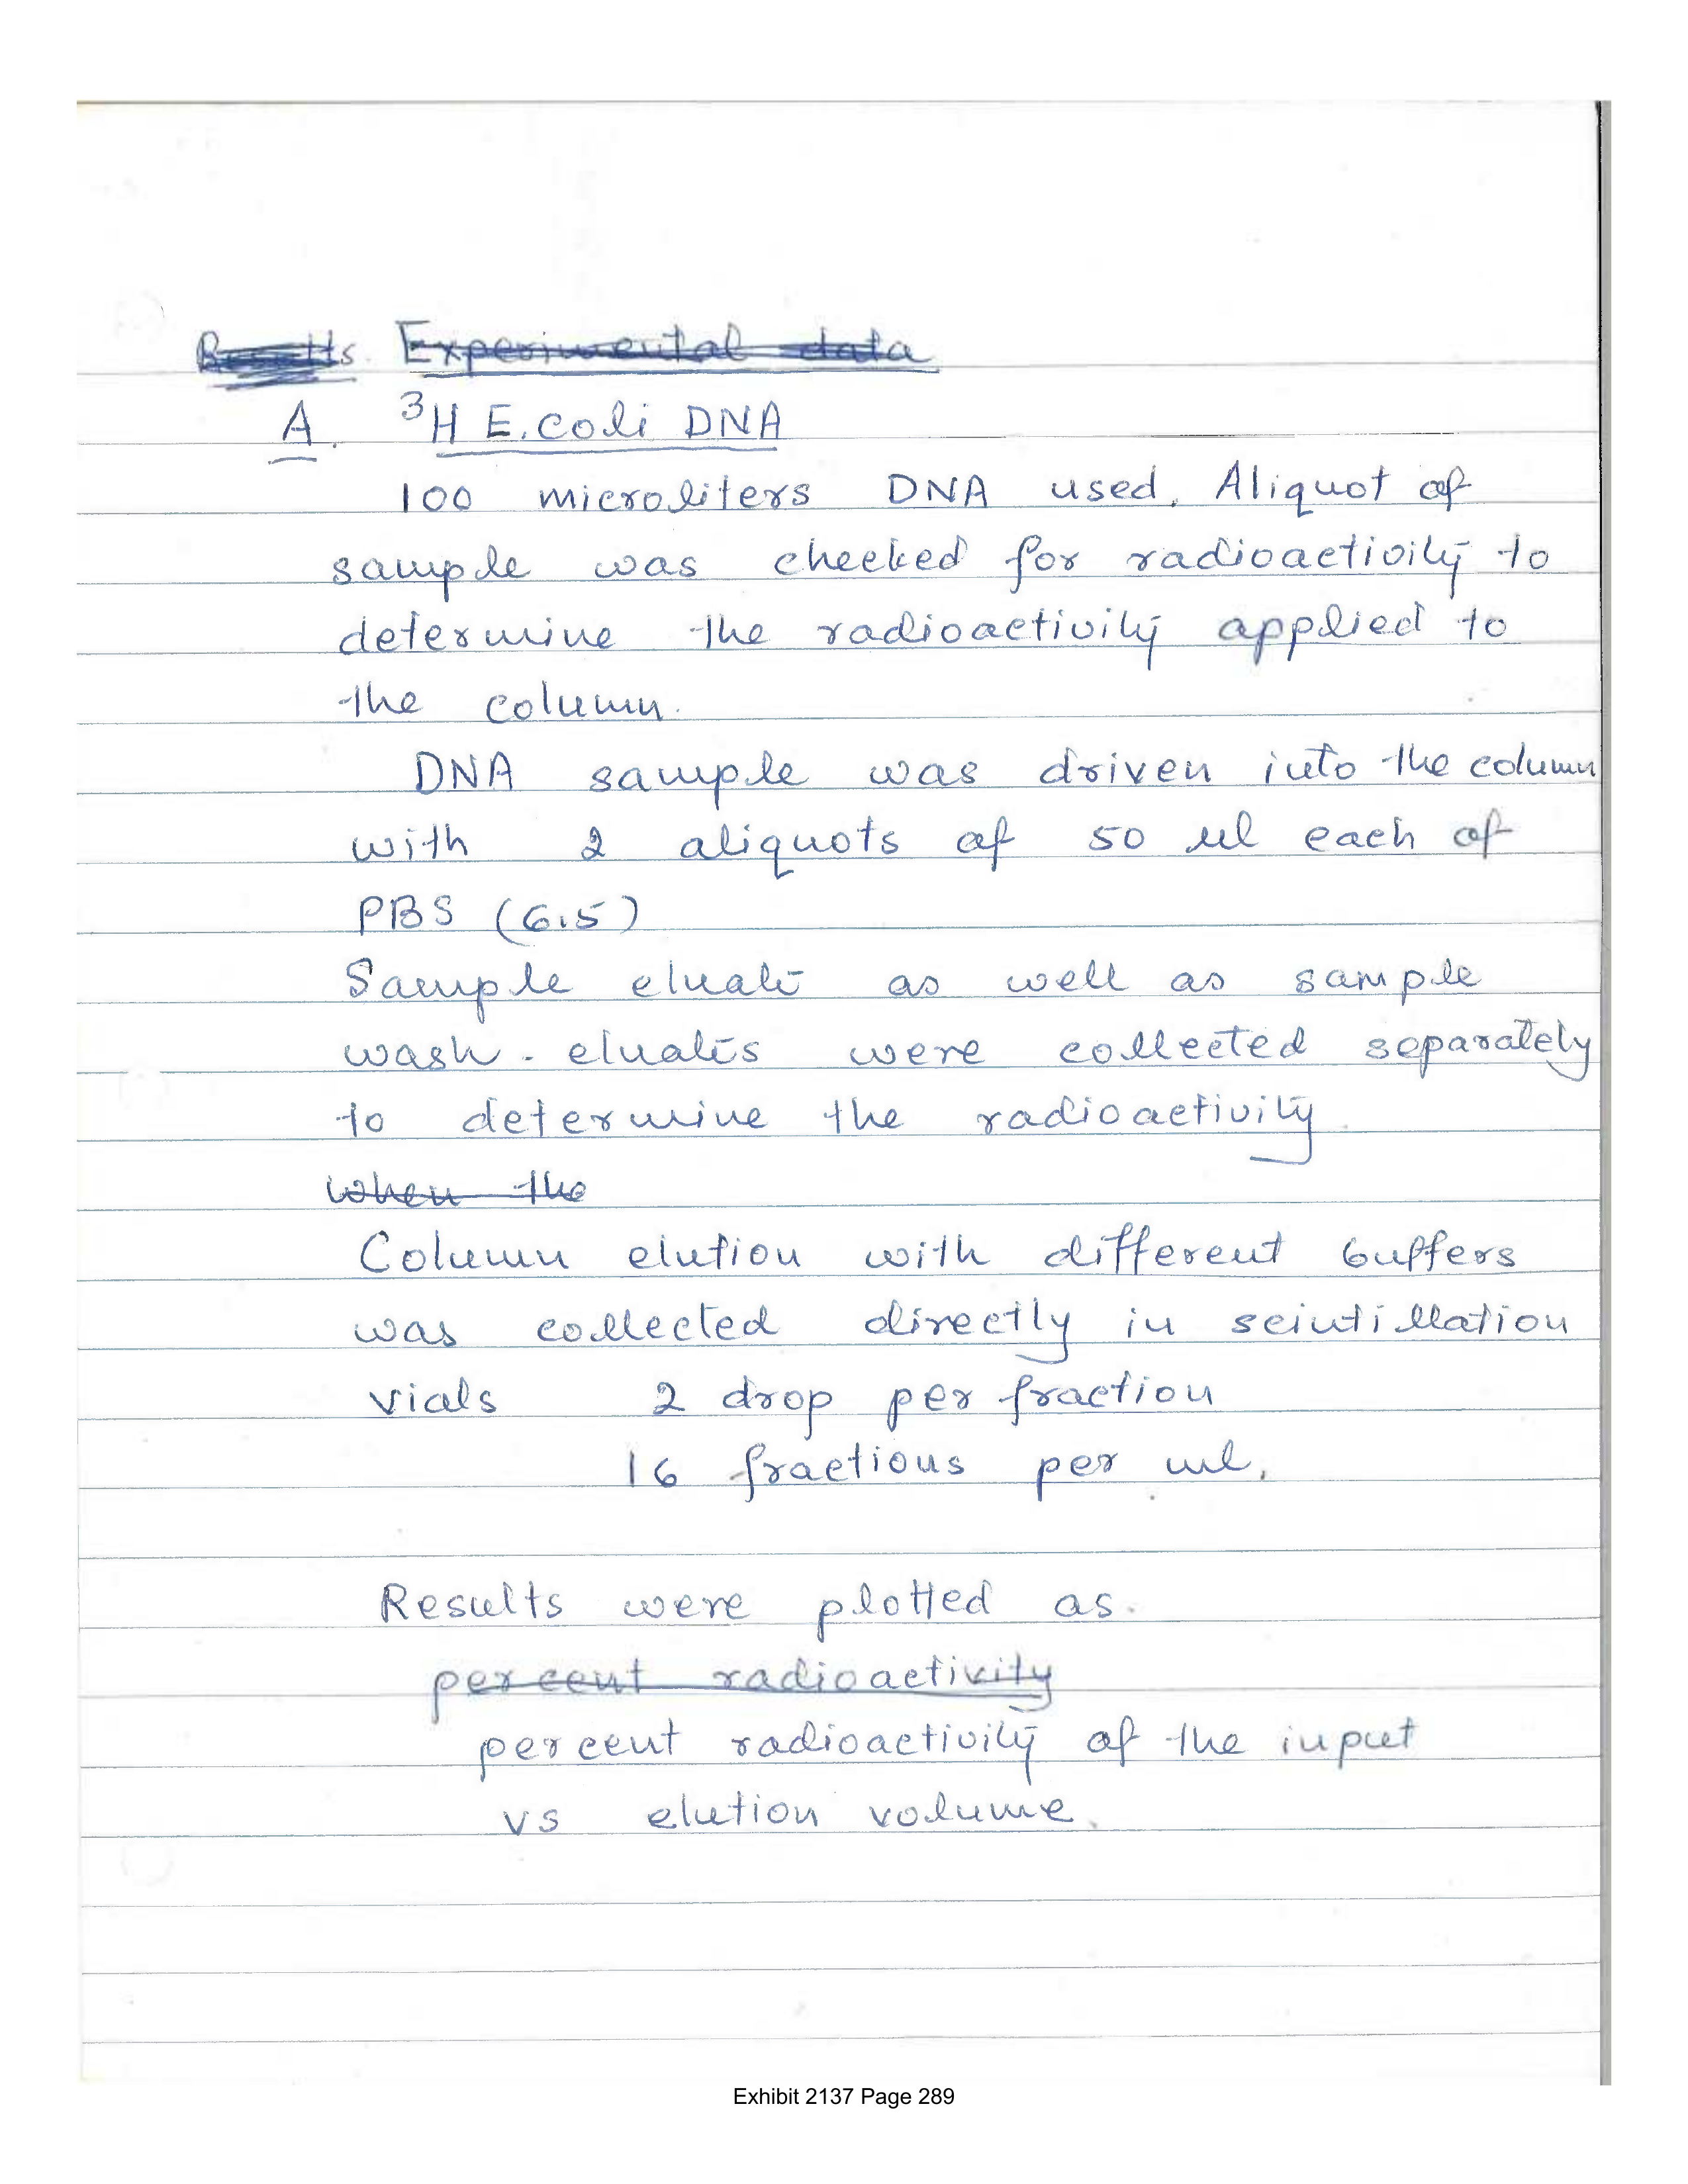 Results. Experimental data
A. ³H E.coli DNA
100 microliters DNA used. Aliquot of
sample was checked for radioactivity to
determine the radioactivity applied to
the column.
DNA sample was driven into the column
with 2 aliquots of 50 ul each of
PBS (6.5)
Sample eluate as well as sample
wash - eluates were collected separately
to determine the radioactivity.
when the
Column elution with different buffers
was collected directly in scintillation
vials 2 drop per fraction
16 fractions per ml.
Results were plotted as.
percent radioactivity
percent radioactivity of the input
vs elution volume.
Exhibit 2137 Page 289